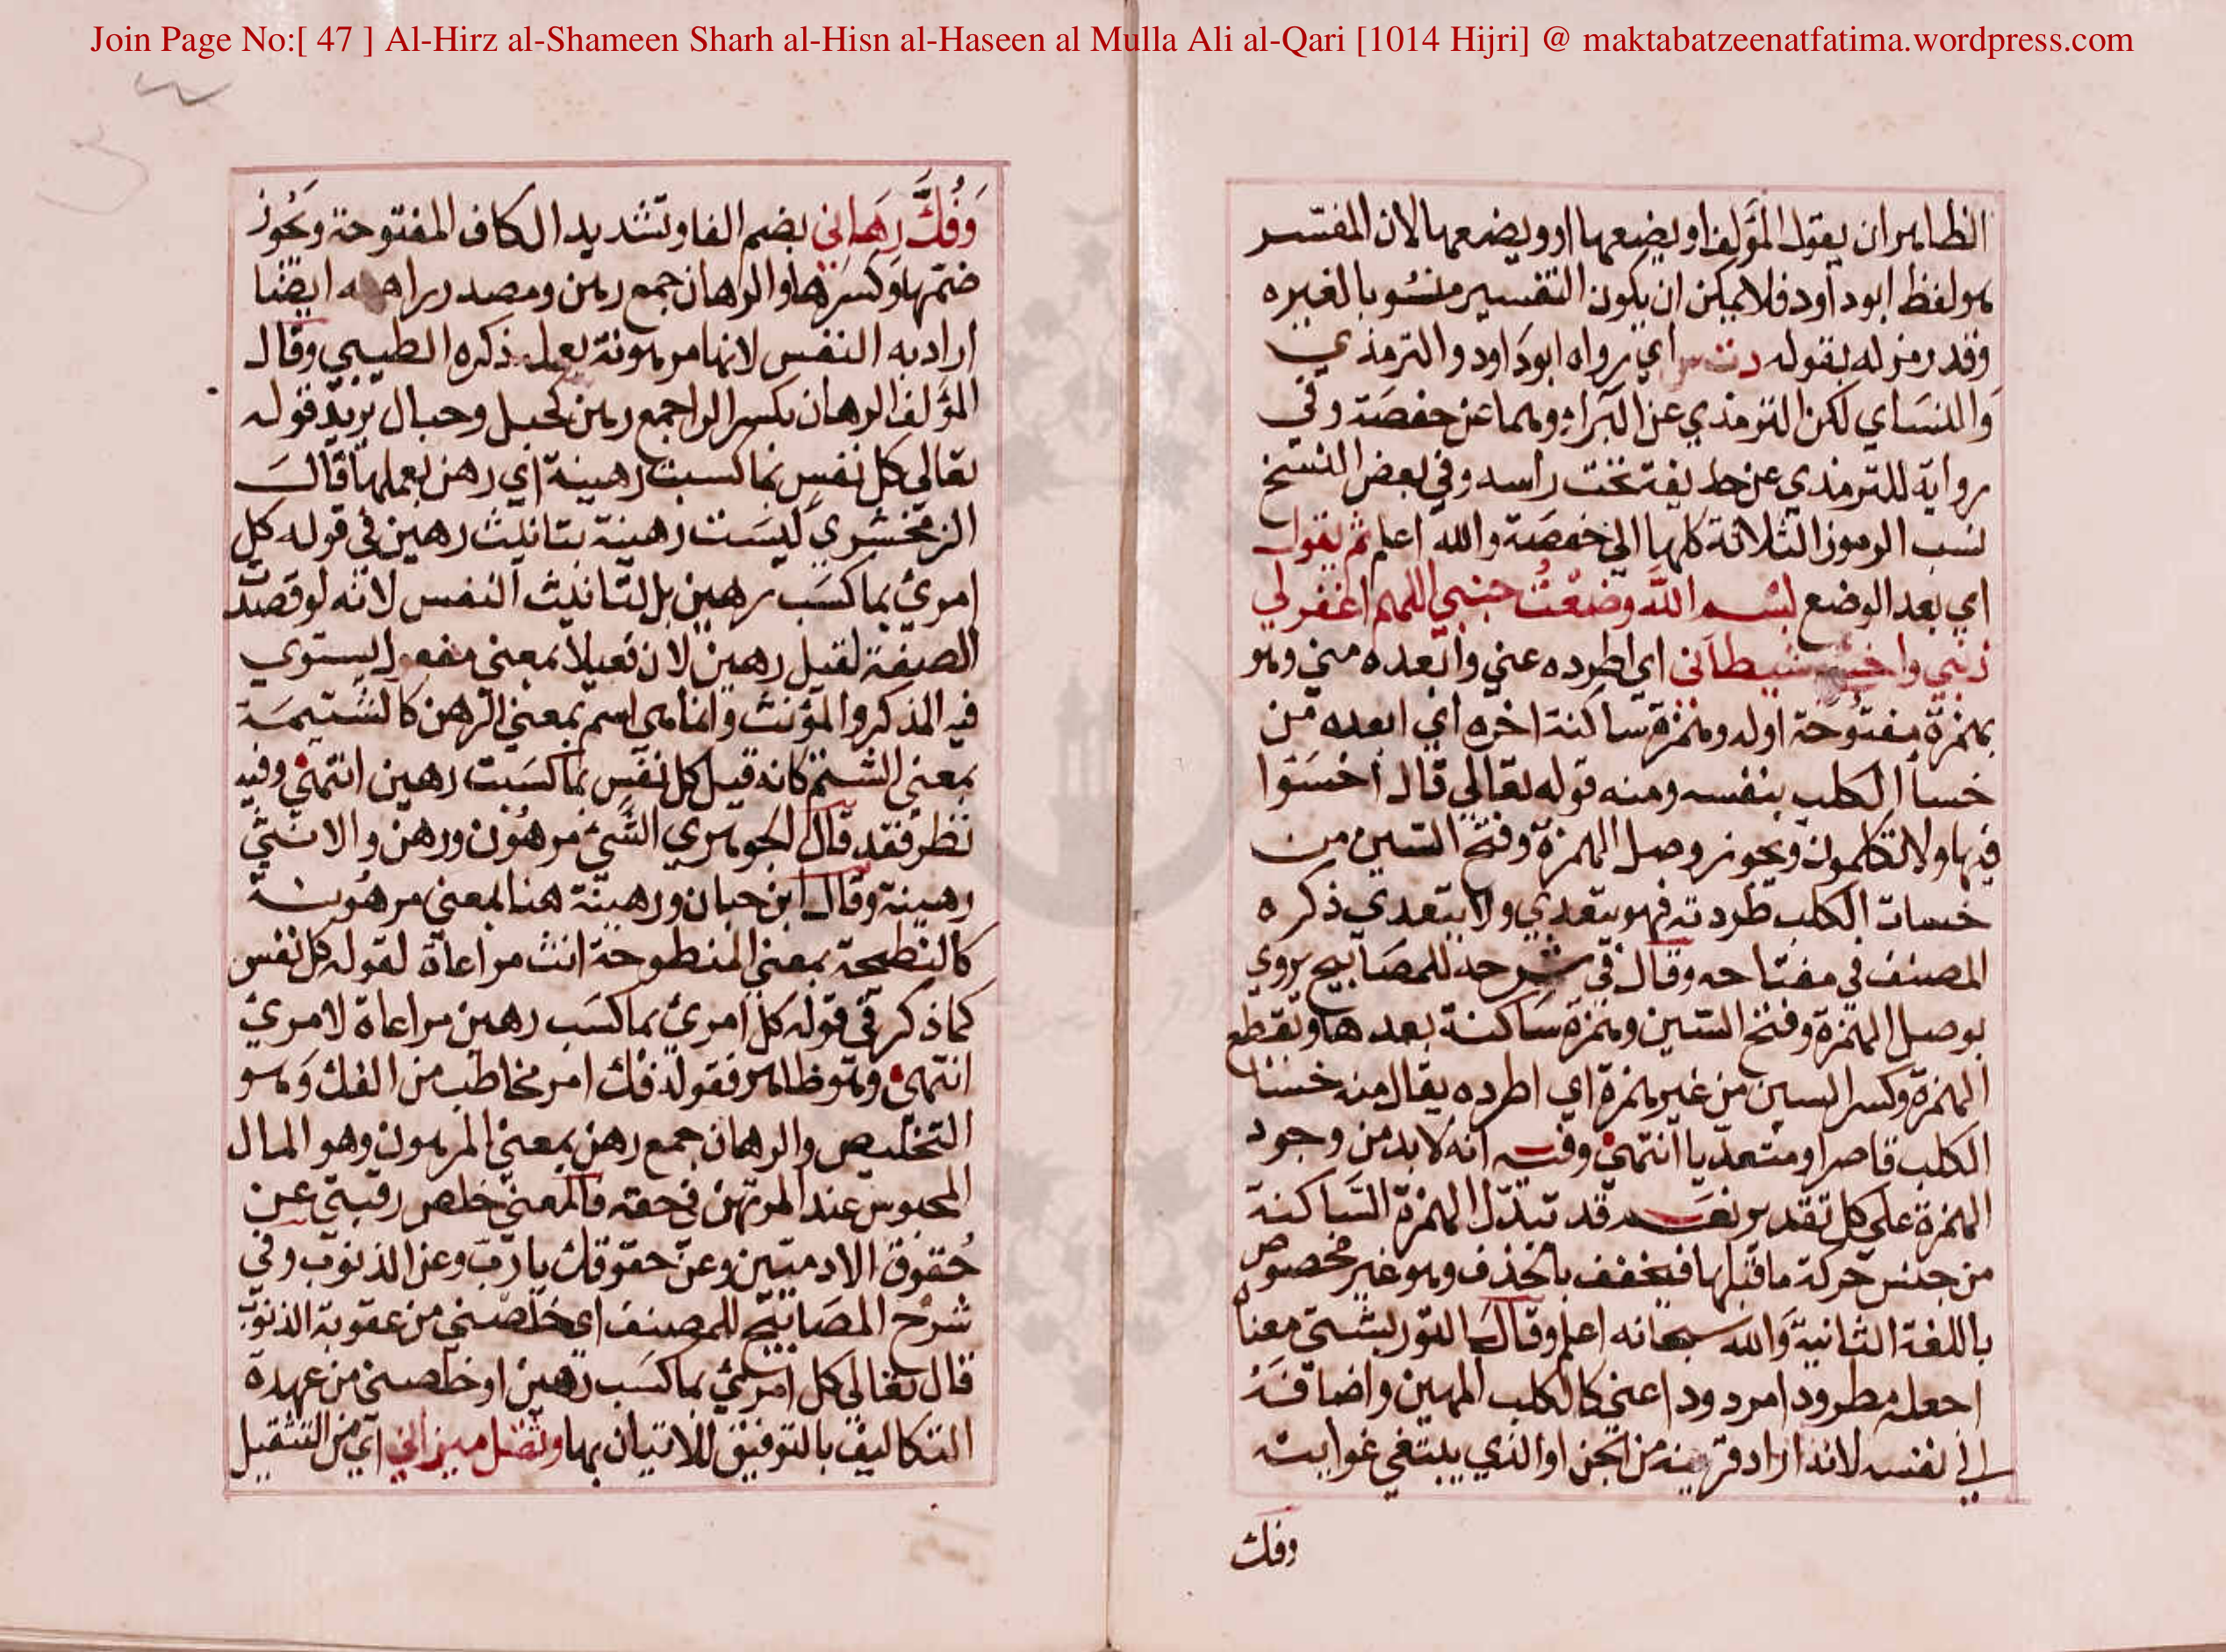 Join Page No:[ 47 ] Al-Hirz al-Shameen Sharh al-Hisn al-Haseen al Mulla Ali al-Qari [1014 Hijri] @ maktabatzeenatfatima.wordpress.com
الظاهر ان يقول المؤلف او يضعها او ويضعها لان المفسر
هو لفظ ابو دآود فلا يمكن ان يكون التفسير منسوبا لغيره
وقد رمز له بقوله دت س اي رواه ابو داود والترمذي
والنساي لكن الترمذي عن البَراء وهما عن حفصَة وفي
رواية للترمذي عن حذيفة تحت راسه وفي بعض النسخ
نسب الرموز الثلاثة كلها الي حفصَة والله اعلم ثم يقول
اي بعد الوضع بسم اللّه وضعْتُ جنبي اللهم اغفر لي
ذنبي واخسئ شيطاني اي اطرده عني وابعده مني وهو
بهمزة مفتوحة اوله وهمزة ساكنة اخره اي ابعده من
خسأ الكلب بنفسه ومنه قوله تعالي قال اخسَئوا
فيها ولا تكلمون ويجوز وصل الهمزة وفتح السين من
خسات الكلب طردته فهو يتعدي ولا يتعدي ذكره
المصنف في مفتاحه وقال في شرحه للمصَابيح يروي
بوصل الهمزة وفتح السين وهمزة سَاكنة بعدها وبقطع
الهمزة وكسر السين من غير همزة اي اطرده يقال منه خسئا
الكلب قاصرا ومتعدّيا انتهيٰ وفيه انه لا بد من وجود
الهمزة علي كل تقدير نعم قد تبدّل الهمزة السَاكنة
من جنس حركة ما قبلها فيخفف بالحذف وهو غير مخصوص
باللغة الثانية وَالله سبحانه اعلم وقال التوربشتي معناه
اجعله مطرودا مردودا عني كالكلب المهين واضافتهُ
الي نفسه لانه اراد قرينه من الجن او الذي يبتغي غوايته
وفك
وَفُكَّ رِهَانِي بضم الفا وتشديد الكاف المفتوحة ويجُوز
ضمّها وكسرها والرهان جمع رهن ومصدر راهنه ايضًا
اراد به النفس لانها مرهونة بعمله ذكره الطيبي وقال
المؤلف الرهان بكسر الرا جمع رهن كحبل وحبال يريد قوله
تعالي كل نفس بما كسبت رهينة اي رهن بعملها قال
الزمخشري ليسَت رهينة بتانيث رهين في قوله كل
امرئ بما كسَب رهين بل لتانيث النفس لانه لو قصدت
الصفة لقيل رهين لان فعيلا بمعني مفعول يستوي
فيه المذكر والمؤنث وانما هي اسم بمعني الرهن كالشتيمَة
بمعني الشتم كانه قيل كل نفس بما كسَبت رهين انتهيٰ وفيه
نظر فقد قال الجوهري الشئ مرهُون ورهن والانثي
رهينة وقال ابن حبان ورهينة هنا بمعني مرهُونة
كالنطيحة بمعني المنطوحة انث مراعاة لقوله كل نفس
كما ذكر في قوله كل امرئ بما كسَب رهين مراعاة لامرئ
انتهيٰ وهو ظاهر فقوله فك امر مخاطب من الفك وَهو
التخليص والرهان جمع رهن بمعني المرهون وهو المال
المحبوس عند المرتهن في حقه فالمعني خلص رقبتي عن
حُقوق الادميّين وعن حقوقك يا رب وعن الذنوب وفي
شرح المصَابيح للمصنف اي خلصني من عقوبة الذنوب
قال تعالي كل امرئ بما كسَب رَهين او خلصني من عهدة
التكاليف بالتوفيق للاتيان بها وثقل ميزاني اي من التثقيل